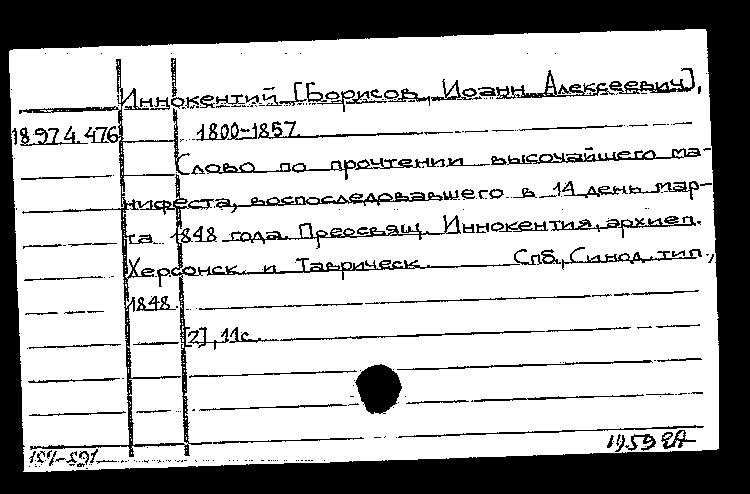 Иннокентий [Борисов, Иоанн Алексеевич],
18.974.476 1800-1857.
Слово по прочтении высочайшего ма-
нифеста, воспоследовавшего в 14 день мар-
та 1848 года. Преосвящ. Иннокентия, архиеп.
Херсонск. и Таврическ. Спб., Синод. тип,
1848
[2], 11 с.